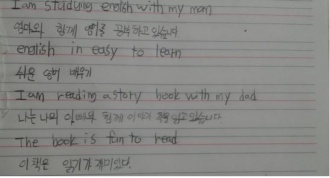 I am studying enolish with my mom
엄마와 함께 영어를 공부하고 있습니다
enolish in easy to learn
쉬운 영어 배우기
I am reading a story book with my dad
나는 나의 아빠와 함께 이야기 책을 읽고 있습니다
The book is fun to read
이 책은 읽기가 재미있다.